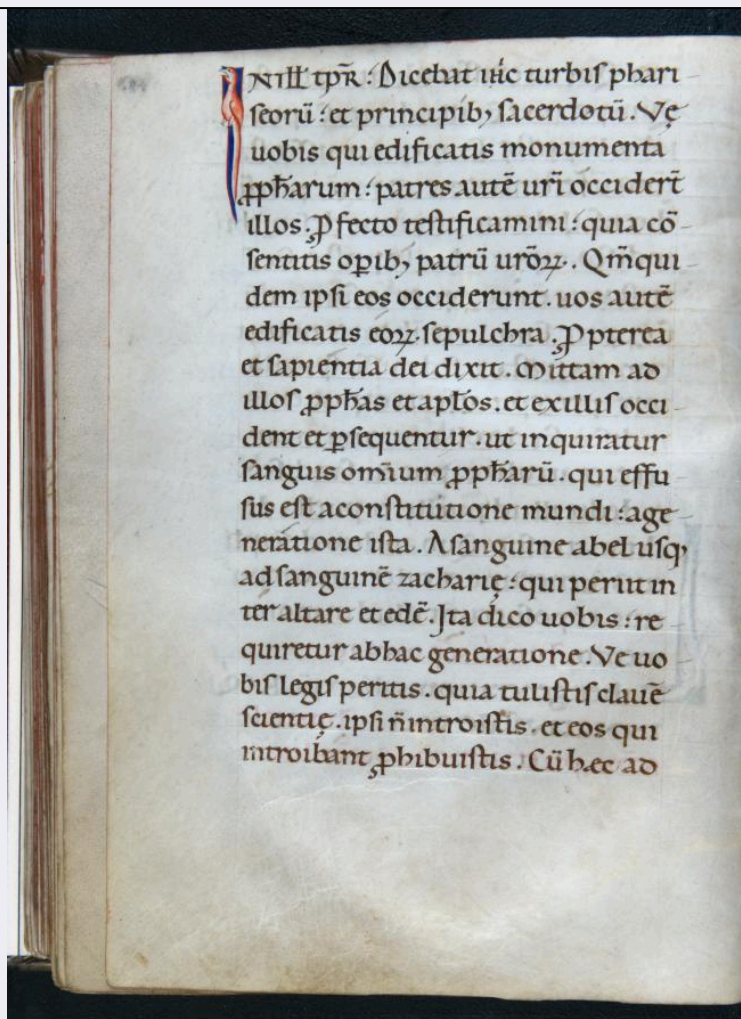 INILL̅ tp̅R̅ : Dicebat ih̅c turbis phari
seorū : et principib; sacerdotū. Vę
uobis qui edificatis monumenta
ꝓph̅arum : patres autē ur̅i occider̅t
illos. Ꝓfecto testificamini : quia cō
sentitis oꝑib; patrū ur̅oꝝ. Qm̅qui
dem ipsi eos occiderunt. uos autē
edificatis eoꝝ. sepulchra. Ꝓpterea
et sapientia dei dixit. Mittam ad
illos ꝓph̅as et apl̅os. et exillis occi
dent et ꝑsequentur. ut inquiratur
sanguis om̅ium ꝓph̅arū. qui effu
sus est aconstitutione mundi : age
neratione ista. A sanguine abel usq;
ad sanguinē zacharię : qui periit in
ter altare et edē. Ita dico uobis : re
quiretur abhac generatione. Ve uo
bis legis peritis. quia tulistis clauē
scientię. ipsi n̅ introistis. et eos qui
introibant ꝓhibuistis. Cū hęc ad